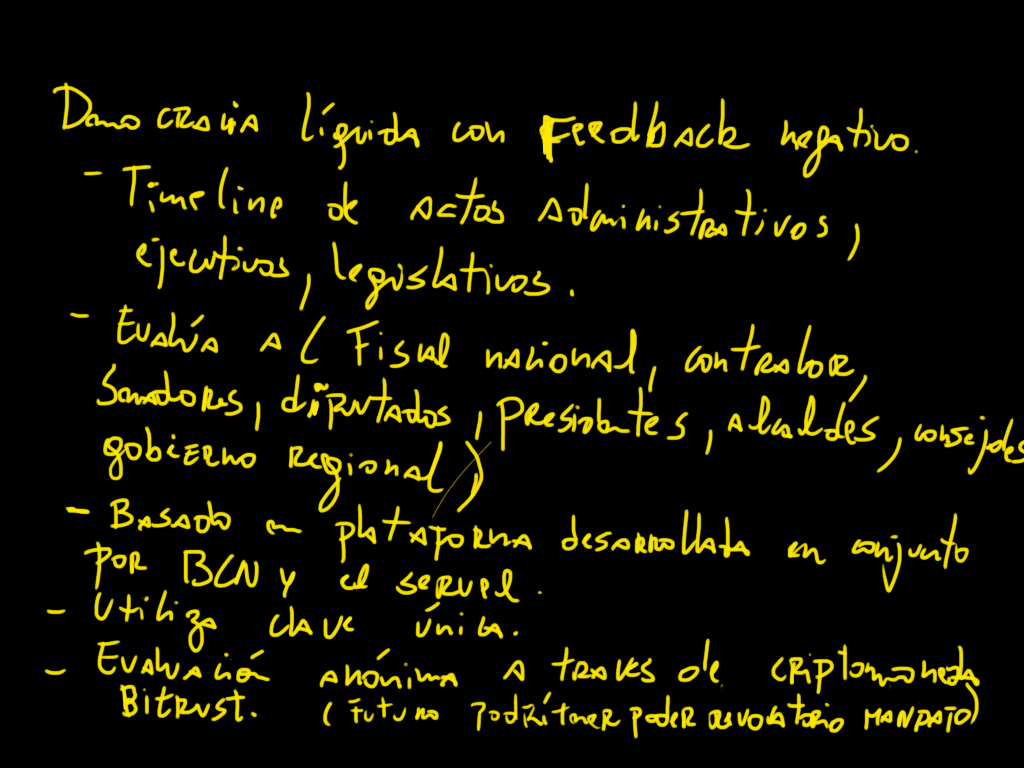 Democracia líquida con Feedback negativo.
- Timeline de actos administrativos,
ejecutivos, legislativos.
- Evalúa a ( Fiscal nacional, contralor,
Senadores, diputados, presidentes, alcaldes, consejales
gobierno regional)
- Basado en plataforma desarrollada en conjunto
por BCN y el servel.
- Utiliza clave única.
- Evaluación anónima a traves de criptomoneda
Bitrust. (Futuro podría tener poder revocatorio MANDATO)